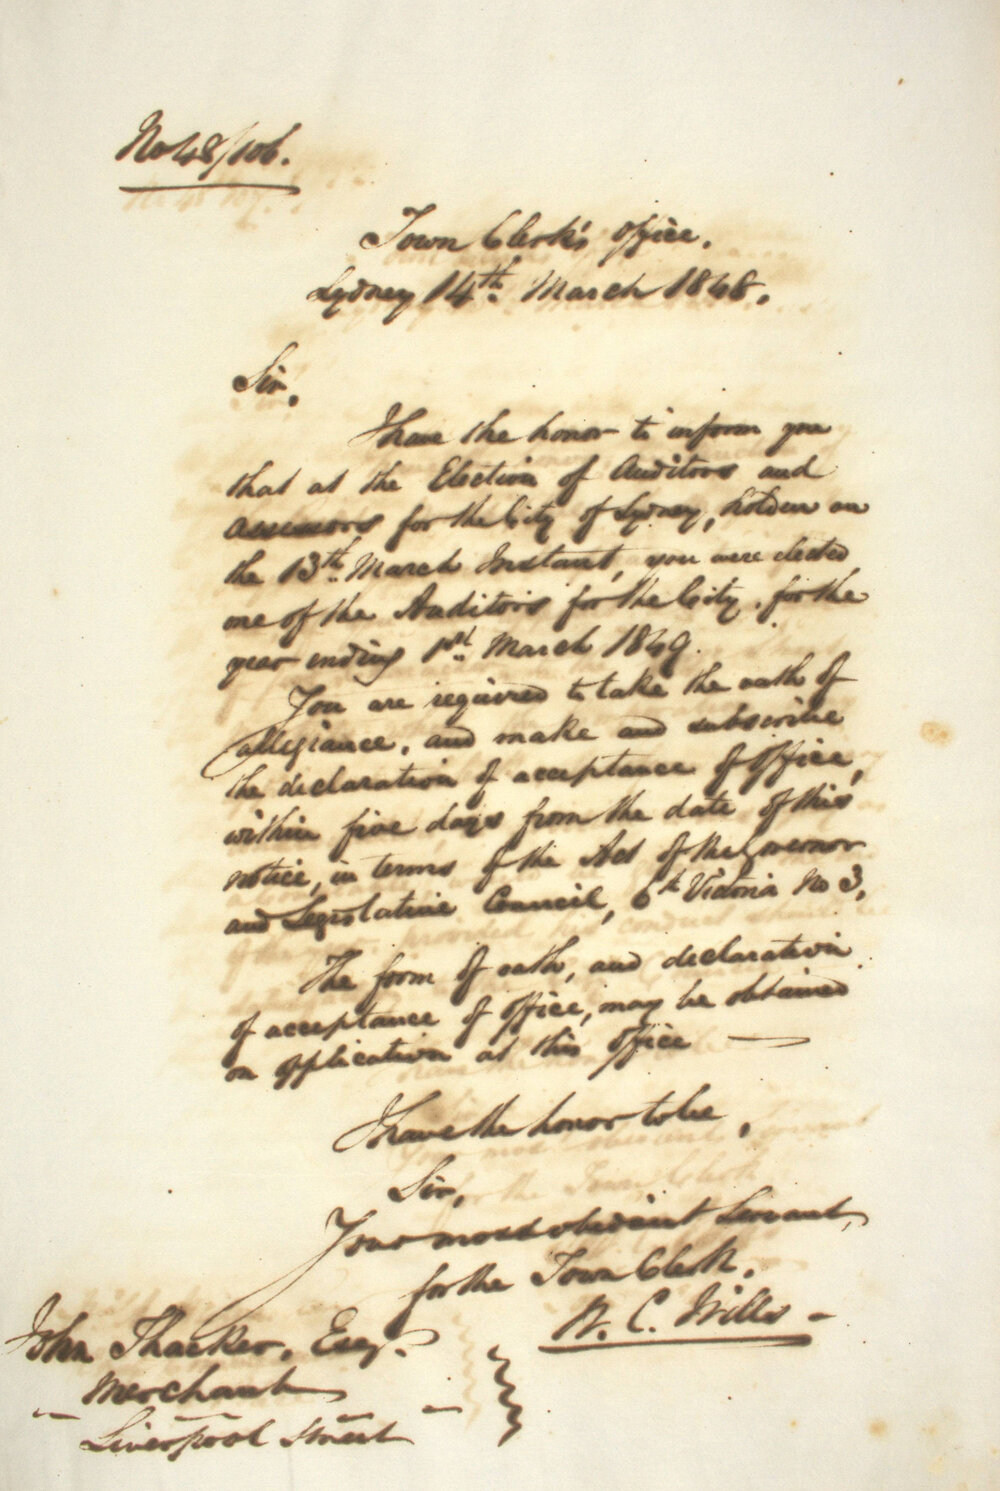 No 48/106.
Town Clerk's Office.
Sydney 14th March 1848.
Sir,
I have the honor to inform you
that at the Election of Auditors and
Assessors for the City of Sydney, holden on
the 13th March Instant, you were elected
one of the Auditors for the City, for the
year ending 1st March 1849.
You are required to take the oath of
allegiance, and make and subscribe
the declaration of acceptance of office,
within five days from the date of this
notice, in terms of the Act of the Governor
and Legislative Council, 6th Victoria No 3.
The form of oath, and declaration
of acceptance of office, may be obtained
on application at this office —
I have the honor to be,
Sir,
Your most obedient Servant,
for the Town Clerk.
W. C. Wills -
John Thacker, Esq.
Merchant
- Liverpool Street -